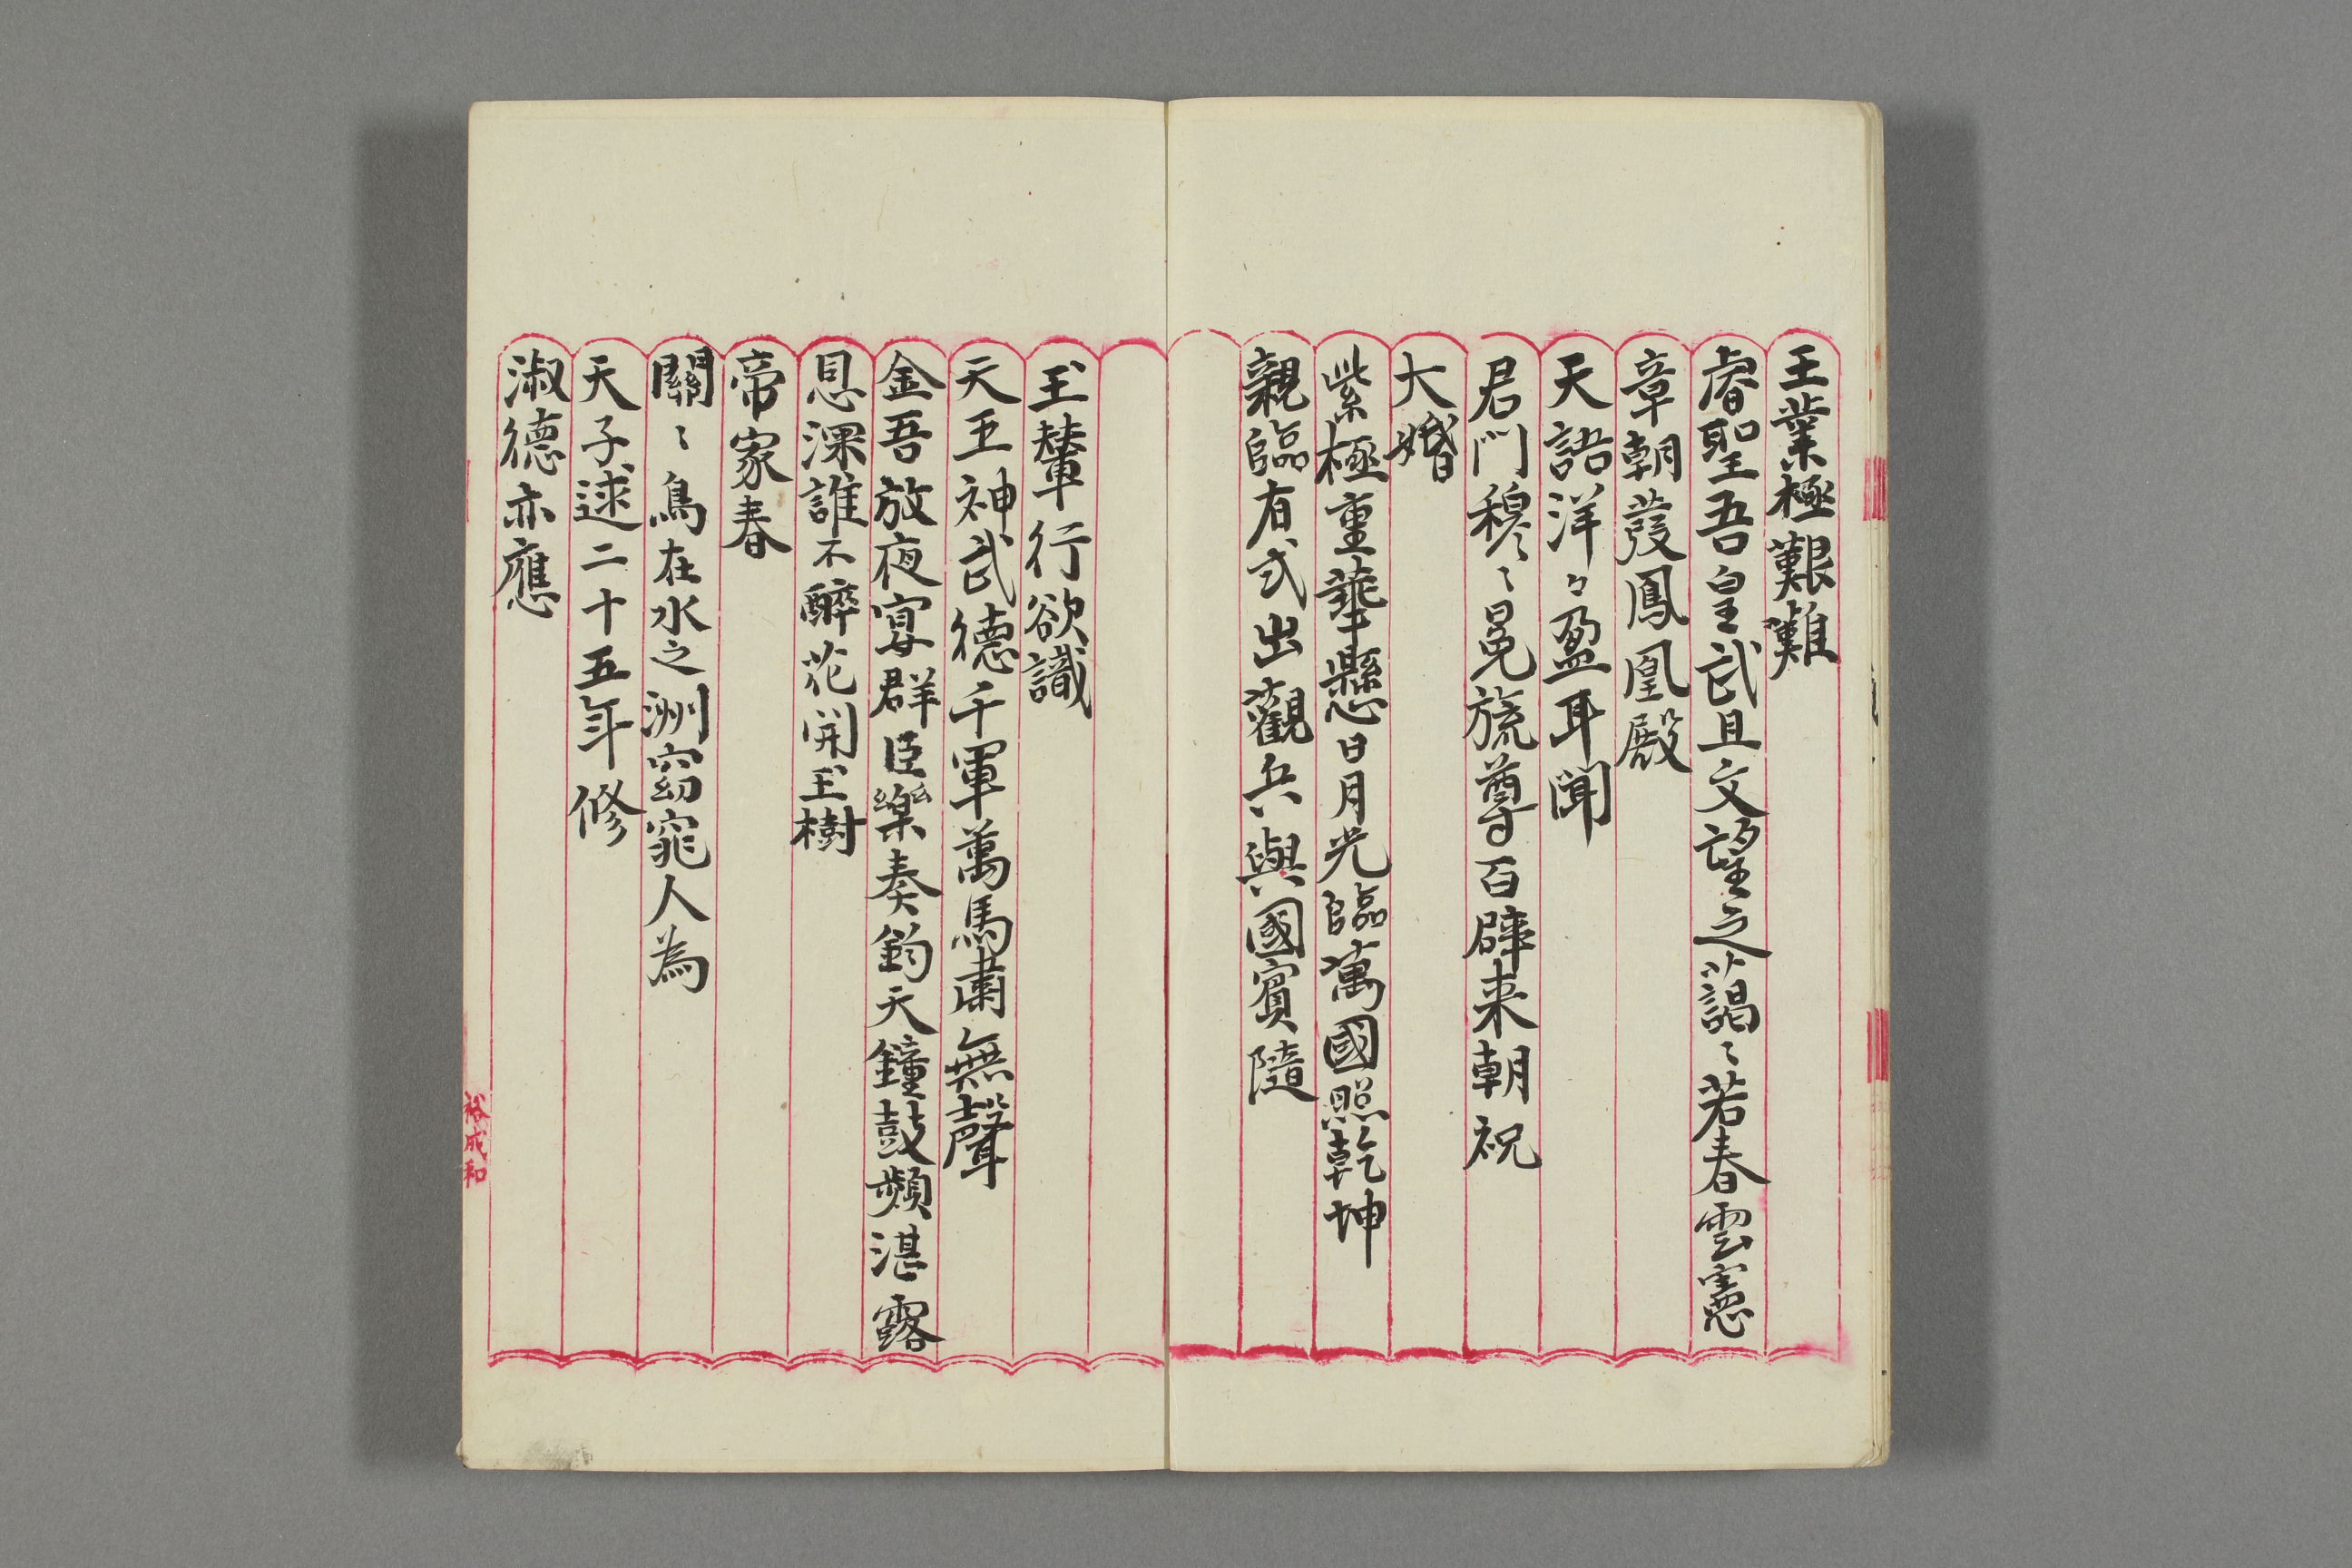 王業極艱難
睿聖吾皇武且文望之藹〻若春雲憲
章朝發鳳凰殿
天語洋〻盈耳聞
君門穆〻冕旒尊百辟来朝祝
大婚
紫極重華懸日月光臨萬國照乾坤
親臨有式出觀兵與國賓隨
玉輦行欲識
天王神武德千軍萬馬肅無聲
金吾放夜宴群臣樂奏鈞天鐘鼓頻湛露
恩深誰不醉花開玉樹
帝家春
關〻鳥在水之洲窈窕人為
天子逑二十五年修
淑德亦應
裕成和